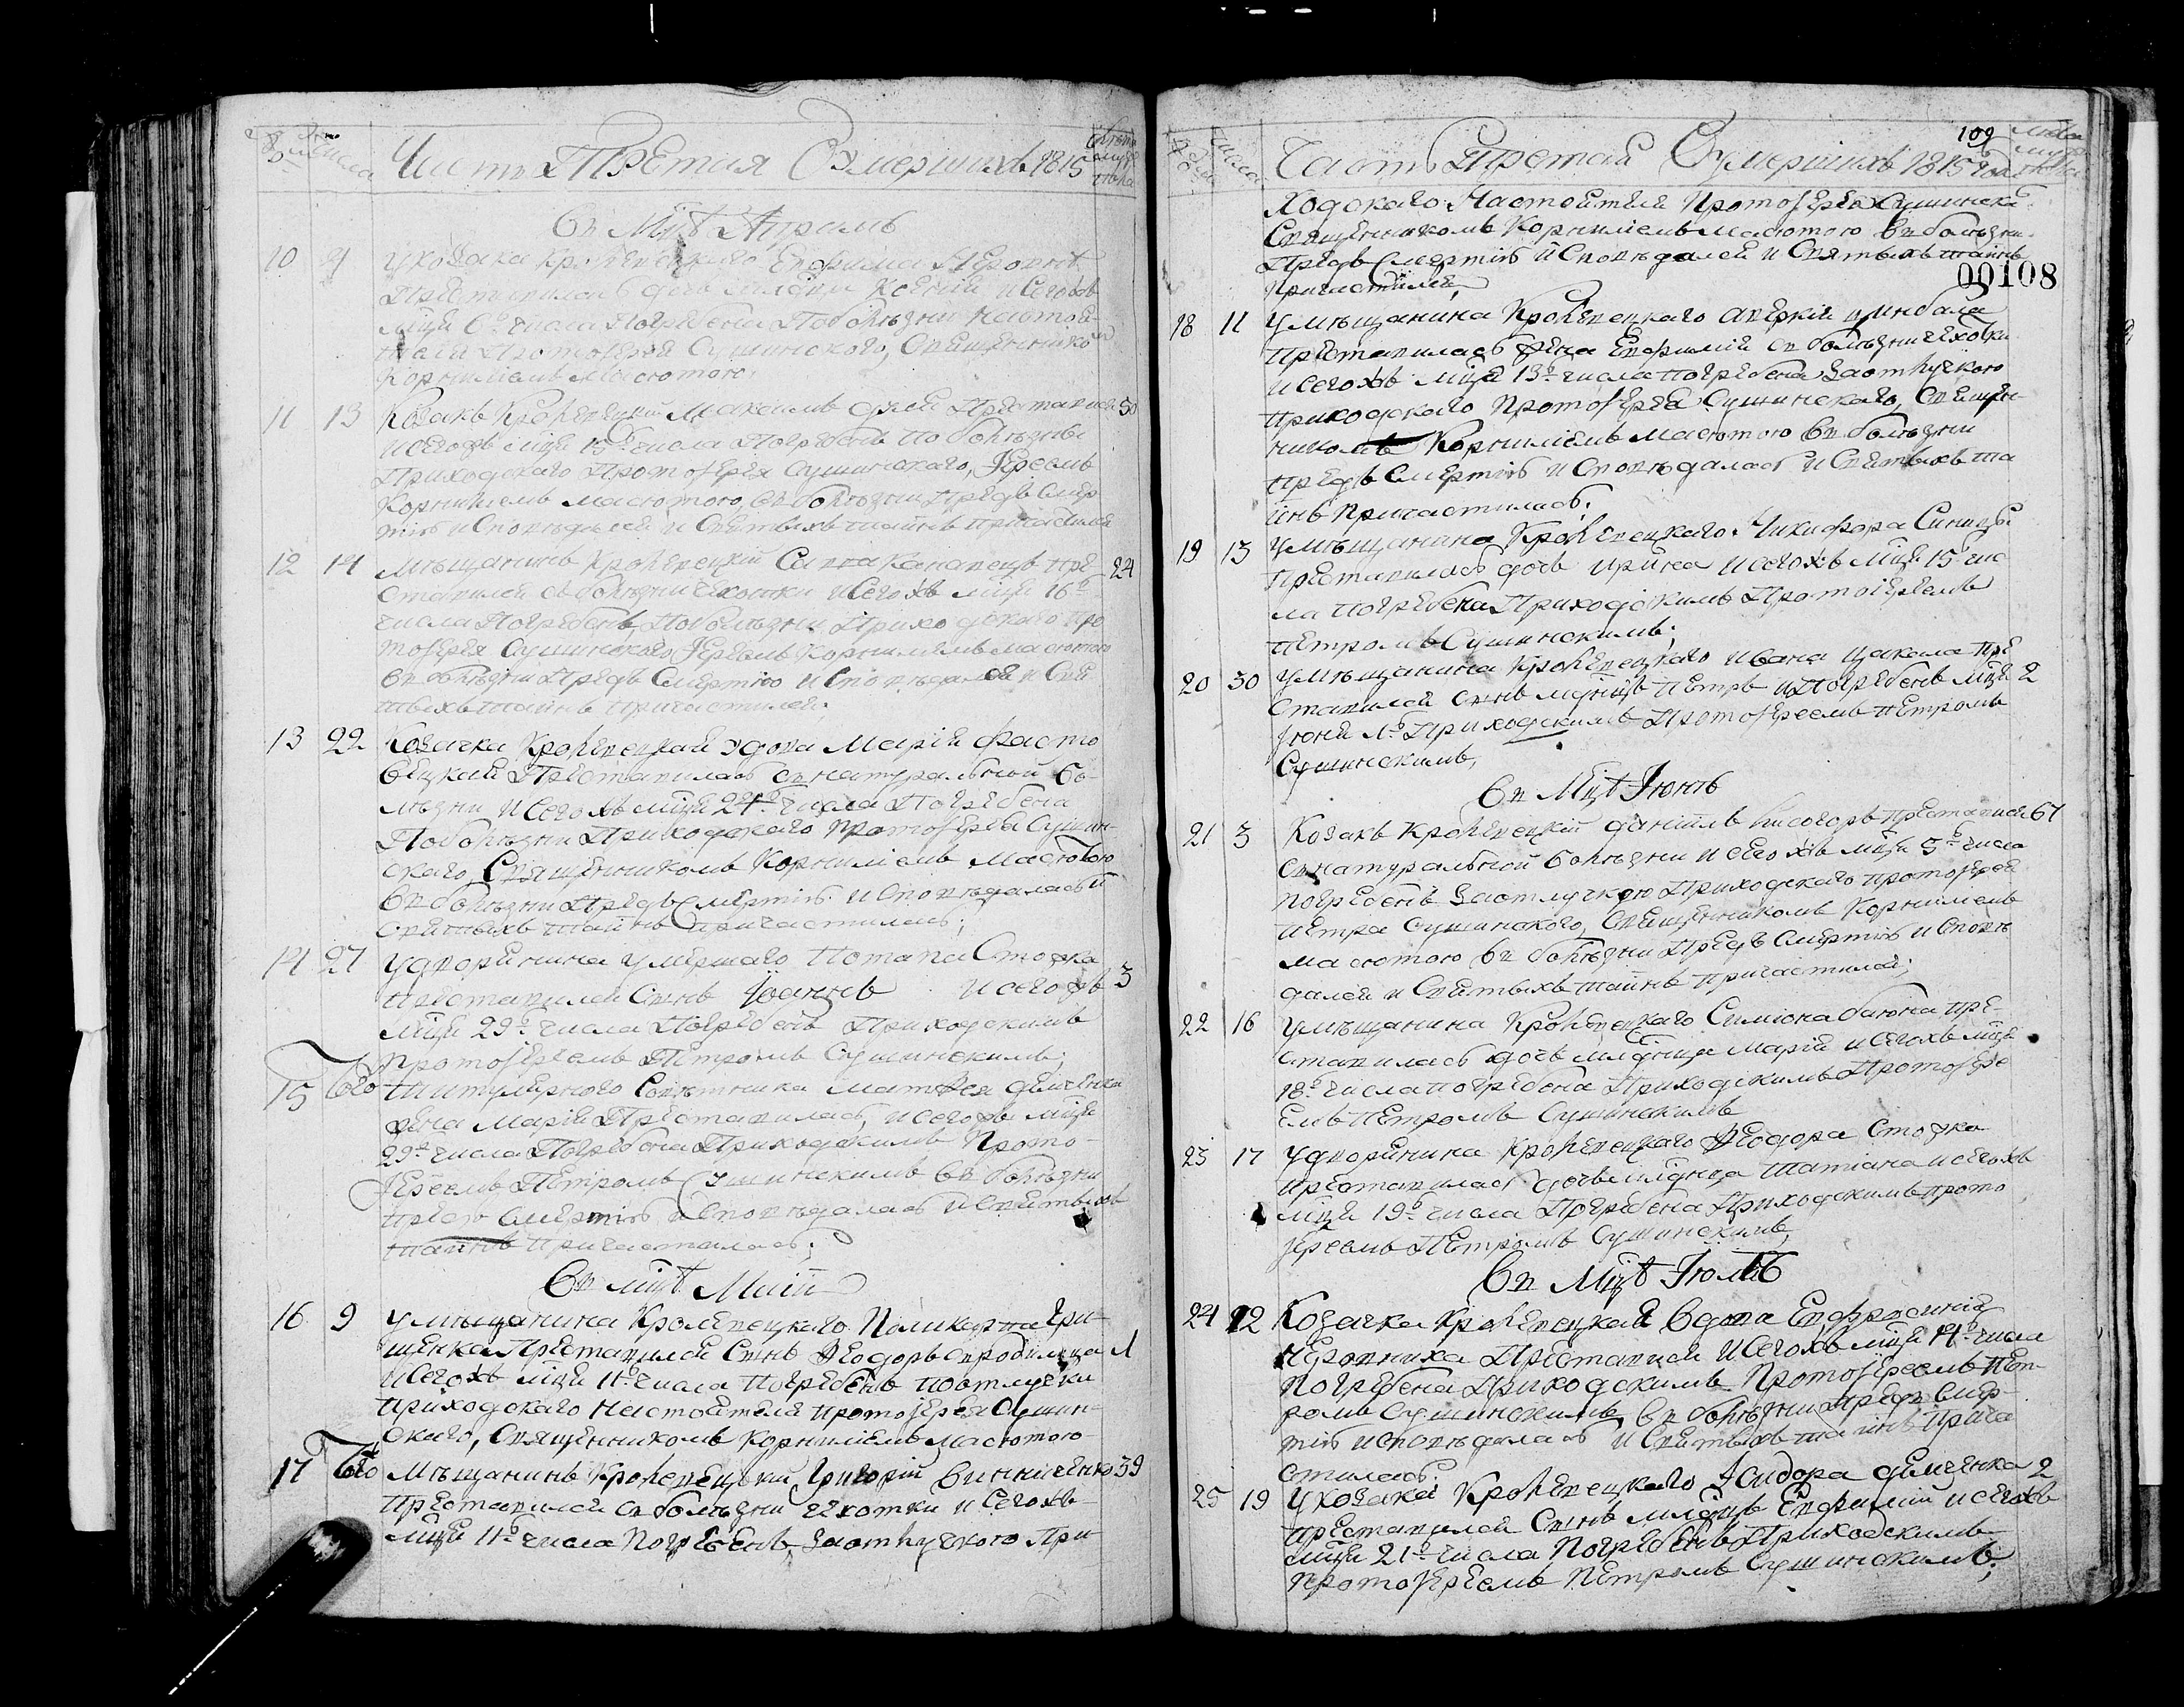 Часть Третия О умершихъ 1815
въ Мцѣ Априлѣ
10 9 У козака Кролевецкаго Евфима
Преставилась дочь Ксенія и сего жъ
мця числа погребена По болѣзни Настоя-
теля Протоіерея Сушинского, Священнико
Корниліемъ Масютою.
11 13 Козакъ Кролевецкий Максимъ Преставился 50
и сегожъ мця 15го числа Погребенъ по болѣзни
Приходскаго Протоіерея Сушинскаго, Іереемъ
Корниліемъ Масютою, въ болѣзни Предъ Смер
тію и Споведался и Святыхъ таинъ причастился
12 14 Мѣщанинъ Кролевецкій Савва Канавецъ пре 24
ставился съ болѣзни чехотки и сего жъ мця 16го
числа Погребенъ, По болѣзни Приходскаго про
тоіерея Сушинскаго Іереемъ Корниліемъ Масютою
въ болѣзни Предъ Смертію и Споведался и Свя
тыхъ таинъ причастился.
13 22 Козачка Кролевецкая удова Марія Фасто
вецкая Преставилась съ натуральной бо-
лѣзни и сего жъ мця 24го числа Погребена
По болѣзни Приходскаго протоіерея Сушин-
скаго, Священникомъ Корниліемъ Масютою
въ болѣзни Предъ Смертію и Споведалась и
Святыхъ таинъ причастилась;
14 27 У дворянина умершаго Потапа Стожка
преставился Сынъ Іоаннъ и сегожъ 3
мця 29го числа Погребенъ Приходскимъ
Протоіереемъ Петромъ Сушинскимъ;
15 Того титулярного Совѣтника Матвея Демченка
жена Марія Преставилась, и сегожъ мця
29го числа Погребена Приходскимъ Прото-
Іереемъ Петромъ Сушинскимъ въ болѣзни
предъ смертію и Споведалась и Святыхъ
таинъ Причастилась;
въ мцѣ Маій
16 9 У мѣщанина Кролевецкого Поликарпа Гри-
щенка Преставился Сынъ Ѳеодоръ съ родимца 1
и сего жъ мця 11го числа погребенъ по отлучки
приходскаго настоятеля протоіерея Сушин-
скаго, Священникомъ Корниліемъ Масютою
17 Того Мѣщанинъ Кролевецкий Григорій Винниченко 39
преставился съ болѣзни чехотки и сегожъ
мця 11го числа Погребенъ, За отлучкою При-
109
Часть Претая О умершихъ 1815 года
ходскаго Настоятеля Протоіерея Сушинска
Священникомъ Корниліемъ Масютою въ болѣзни
Предъ Смертію и Споведался и Святыхъ таинъ
00108
Причастился;
18 11 У мѣщанина Кролевецкаго Аверкія Цимбала
преставилась жена Евфимія съ болѣзни чехотки
и сего жъ мця 13го числа погребена За отлучкою
приходскаго Протоіерея Сушинскаго, Священ
никомъ Корниліемъ Масютою въ болѣзни
предъ Смертію и Споведалась и Святыхъ та
инъ причастилась;
19 13 У мѣщанина Кролевецкаго Никифора Синицы
преставилась дочь Ирина и сего жъ мця 15 чис
ла погребена Приходскимъ Протоіереемъ
Петромъ Сушинскимъ;
20 30 У мѣщанина Кролевецкаго Ивана Цакала пре
ставился Сынъ млднцъ Петръ и Погребенъ мця 2
Іюня 1го Приходскимъ Протоіереемъ Петромъ
Сушинскимъ,
въ Мцѣ Іюнѣ
21 3 Козакъ Кролевецкій Даніилъ Лисогоръ преставился 67
съ натуральной болѣзни и сего жъ мця 5го числа
погребенъ За отлучкою Приходскаго протоіерея
Петра Сушинского, Священникомъ Корниліемъ
Масютою въ болѣзни Предъ Смертію и Спове
дался и Святыхъ таинъ причастился;
22 16 У мѣщанина Кролевецкаго Симіона Баюна пре-
ставилась дочь млднца Марія и сегожъ мця
18го числа погребена Приходскимъ Протоіере
емъ Петромъ Сушинскимъ
23 17 У дворянина Кролевецкаго Ѳеодора Стожка
преставилась дочь млднца Татіана и сегожъ
мця 19го числа Погребена Приходскимъ прото
Іереемъ Петромъ Сушинскимъ,
въ Мцѣ Іюлѣ
24 12 Козачка Кролевецкая Вдова Евфросинія
Преставися и сегожъ мця 14го числа
погребена Приходскимъ Протоіереемъ Пет-
ромъ Сушинскимъ, въ болѣзни Предъ Смер-
тію исповедалась и Святыхъ таинъ Прича
стилась;
25 19 У козака Кролевецкаго Исидора Демченка 2
преставился Сынъ млднцъ Евфимій и сегожъ
мця 21го числа Погребенъ Приходскимъ
Протоіереемъ Петромъ Сушинскимъ;